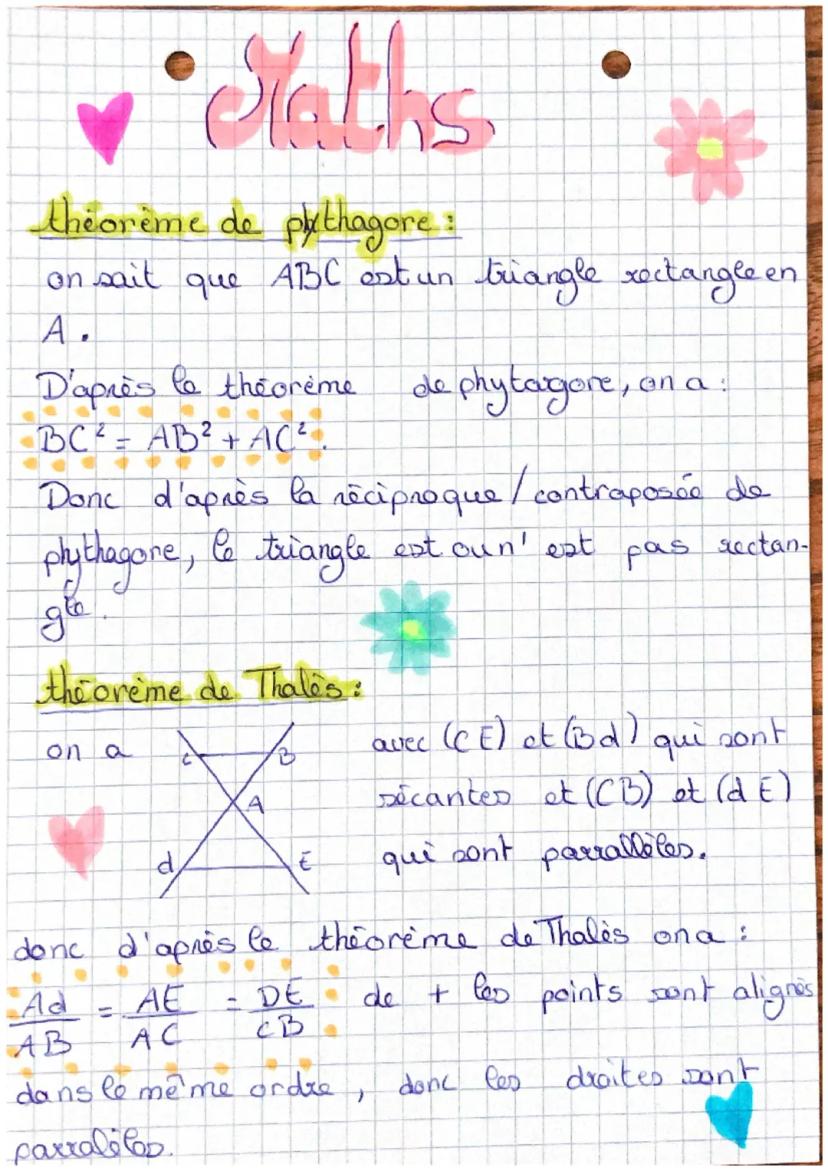 Maths
théorème de pythagore :
on sait que ABC est un triangle rectangle en
A.
D'après le théorème de phytagore, on a :
BC² = AB² + AC².
Donc d'après la réciproque / contraposée de
phythagore, le triangle est ou n'est pas rectan-
gle.
théorème de Thalès :
on a
C B
A
d E
avec (CE) et (Bd) qui sont
sécantes et (CB) et (dE)
qui sont parrallèles.
donc d'après le théorème de Thalès on a :
Ad/AB = AE/AC = DE/CB de + les points sont alignés
dans le même ordre, donc les droites sont
parralèles.